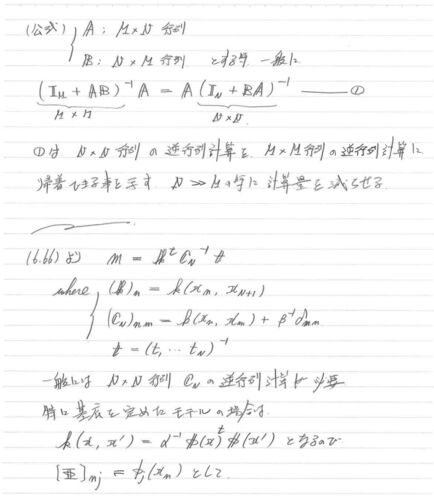 (公式) { A ; M×N 行列
B ; N×M 行列 とする時 一般に
(I_M + AB)^{-1} A = A (I_N + BA)^{-1} ——— ①
M×M N×N
①は N×N 行列 の 逆行列計算を M×M 行列 の 逆行列計算に
帰着できる事を示す. N ≫ M の時に 計算量を 減らせる.
(6.66) より m = k^t C_N^{-1} t
where { (k)_n = k(x_n, x_{N+1})
(C_N)_{nm} = k(x_n, x_m) + β^{-1} δ_{nm}
t = (t_1 ⋯ t_N)^{-1}
一般には N×N 行列 C_N の 逆行列計算が 必要
特に 基底を 定めた モデル の 場合は.
k(x, x') = α^{-1} φ(x)^t φ(x') となるので
[Φ]_{nj} = φ_j(x_n) として.